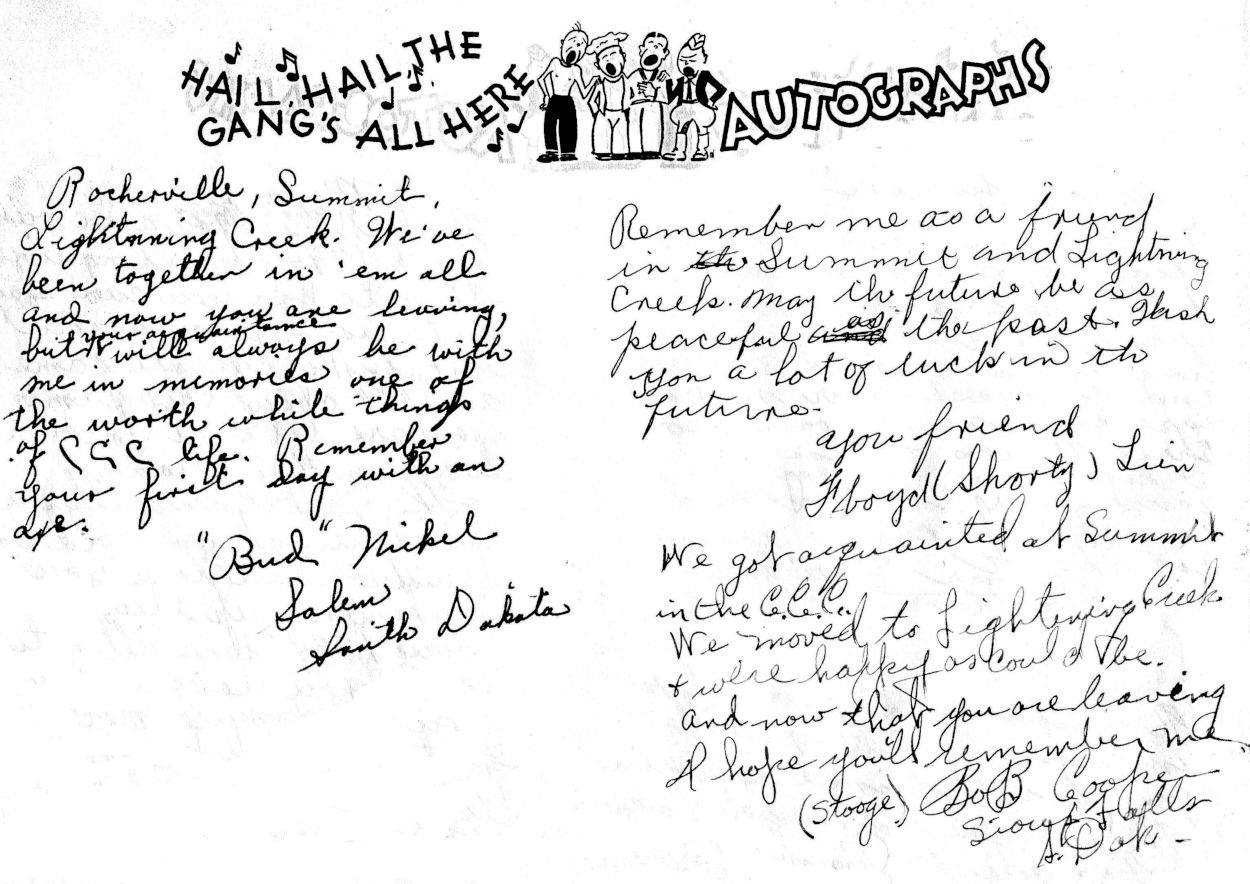 HAIL, HAIL, THE
GANG'S ALL HERE
AUTOGRAPHS
Rocherville, Summit,
Lightnning Creek. We've
been together in 'em all
and now you are leaving,
your acquaintance
but it will always be with
me in memories one of
the worth while things
of CCC life. Remember
your first day with an
axe.
"Bud" Nickel
Salem
South Dakota
Remember me as a friend
in the Summit and Lightning
Creek. May the future be as
peaceful as the past. Wish
you a lot of luck in th
future.
you friend
Floyd (Shorty) Lien
We got acquainted at Summit
in the C.C.C.
We moved to Lightening Creek
+ we're happy as could be.
and now that you are leaving
I hope you'll remember me
(Stooge) BoB Cooper
Sioux Falls
S. Dak -